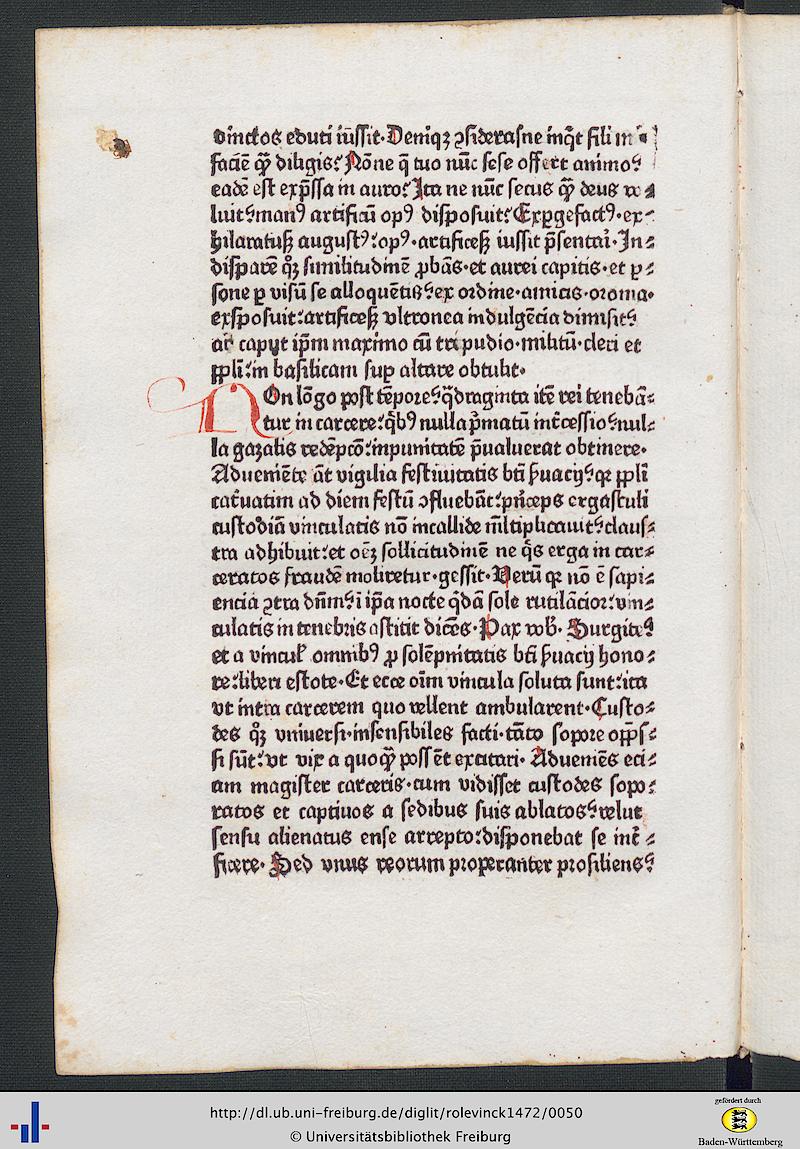 vinctos eduti iūssit·Deniqꝫ ꝯsiderasne inq̄t fili
faciē qꝫ diligis? Nōne q̄ tuo nūc sese offert animo?
eadē est exp̄ssa in auro? Ita ne nūc secus qꝫ deus
luit?manꝰ artificū opꝰ disposuit? Exꝑgefactꝰ·ex⸗
hilaratusꝫ augustꝰ:opꝰ·artificesꝫ iussit p̄sentari·In⸗
disparē qͦꝫ similitudinē ꝓbās·et aurei capitis·et ꝑ⸗
sone ꝑ visū se alloquētis?ex ordine·amicis·oroma·
exsposuit:artificesꝫ vltronea indulgēcia dimisit?
ac caput ipm̄ maximo cū tripudio·militū·cleri et
ppli:in basilicam suꝑ altare obtulit·
NOn lōgo post tēpore?q̄draginta itē rei tenebā⸗
tur in carcere:q̄bꝰ nulla p̄matū int̄cessio?nul⸗
la gazalis redēpcō:inpunitatē p̄ualuerat obtinere·
Adueniēte āt vigilia festiuitatis bt̄i ẜuacij?qꝛ ppl̄i
cat̄uatim ad diem festū ꝯfluebāt:pn̄ceps ergastuli
custodiā vinculatis nō incallide ml̄tiplicauit?claus⸗
tra adhibuit:et oēꝫ sollicitudinē ne q̄s erga in car⸗
ceratos fraudē moliretur·gessit·Verū qꝛ nō ē sapi⸗
encia ꝯtra dn̄m?ī ip̄a nocte q̄dā sole rutilācior:vin⸗
culatis in tenebris astitit dicēs·Pax vob̄·Surgite?
et a vincul' omnibꝰ ꝓ solēpnitatis bt̄i ẜuacij hono⸗
re:liberi estote·Et ecce oīm vincula soluta sunt:ita
vt intra carcerem quo vellent ambularent·Custo⸗
des qͦꝫ vniuersi·insensibiles facti·tāto sopore opp̄s⸗
si sūt:vt vix a quoqꝫ possēt excitari· Adueniēs eci⸗
am magister carceris·cum vidisset custodes sopo⸗
ratos et captiuos a sedibus suis ablatos?velut
sensu alienatus ense arrepto:disponebat se int̄⸗
ficere· Sed vnus reorum properanter prosiliens?
http://dl.ub.uni-freiburg.de/diglit/rolevinck1472/0050
© Universitätsbibliothek Freiburg
gefördert durch
Baden-Württemberg